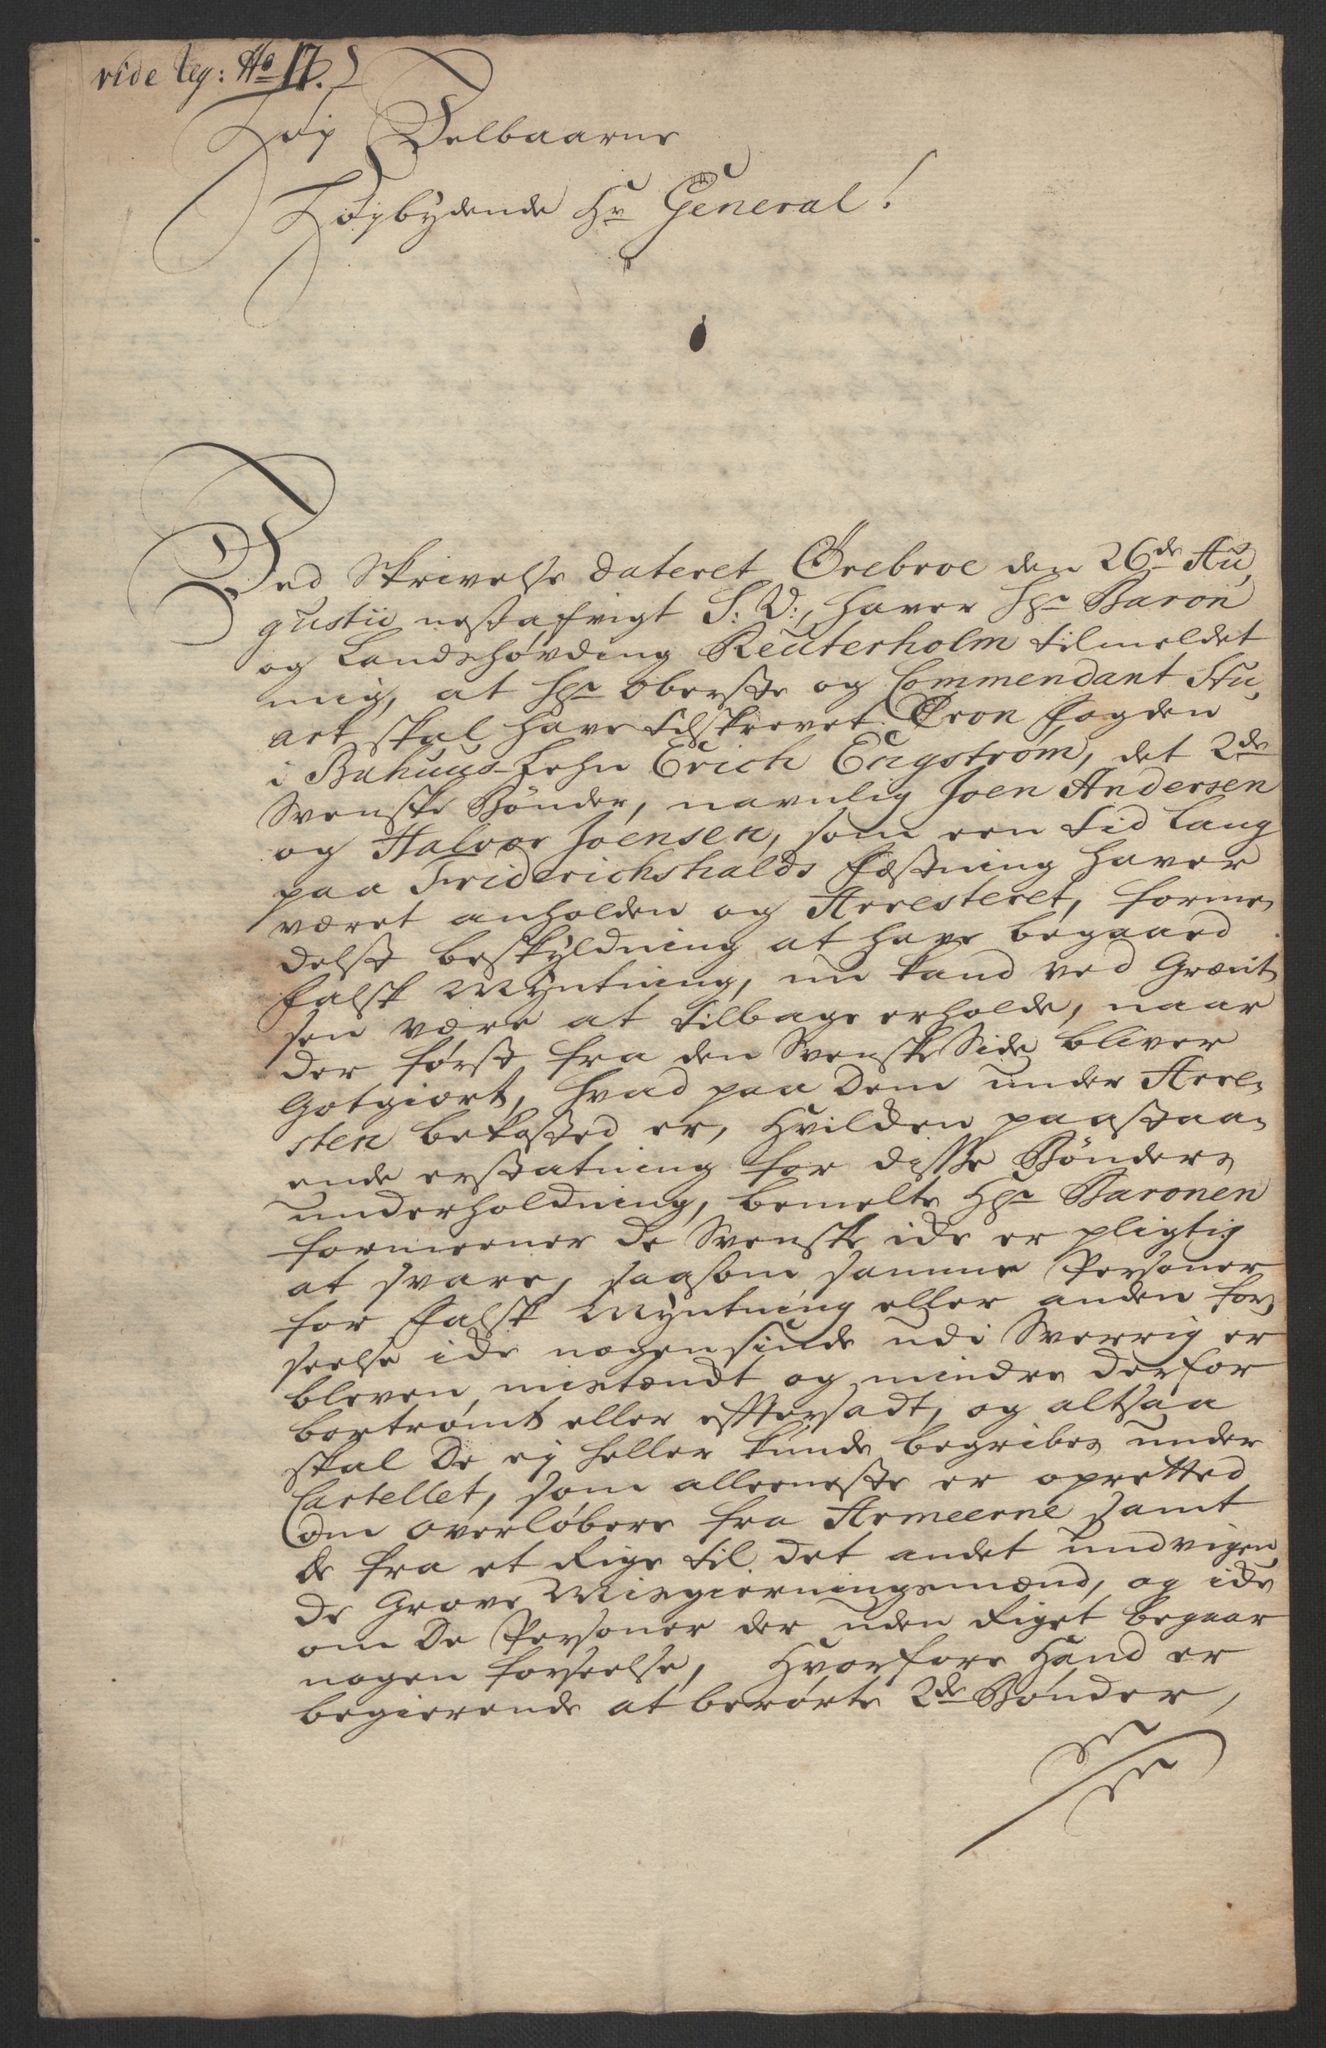 vide Reg: No 17.
Høy Velbaarne
Høybydende Hr General!
Ved Skrivelse dateret Ørebroe den 26de Au,
gustii nestafvigt S: V:, haver Hr Baron
og Landshøvding Reuterholm tilmeldet
mig, at Hr Oberste og Commendant Stu,
art skal have tilskrevet Cron fogden
i Bahuus-Lehn Erich Engstrøm, det 2de
Svenske Bønder, navnlig Joen Andersen
og Halvor Joensen, som een tid lang
paa Friderichshalds fæstning haver
været anholden og Arresteret, forme-
delst beskyldning at have begaaed
falsk Myntning, nu kand ved Grænt-
sen være at tilbage erholde, naar
der først fra den Svenske Side bliver
Gotgiort, hvad paa dem under Arre-
sten bekosted er, Hvilden paastaa-
ende erstatning for disse Bønders
underholdning, bemelte Hr Baronen
formeener de Svenske ide er pligtig
at svare, saasom samme Personer
for falsk Myntning eller anden for-
seelse ide nogensinde udi Sverrig er
bleven mistændt og mindre derfor
bortrømt eller eftersadt, og altsaa
skal de ej heller kunde begribes under
Cartellet, som alleeneste er opretted
om overløbere fra Armeerne samt
de fra et Rige til det andet undvigen,
de Grove Misgierningsmænd, og ide
om de Personer der uden Riget begaar
nogen forseelse, Hvorfore Hand er
begierende at berørte 2de Bønder,